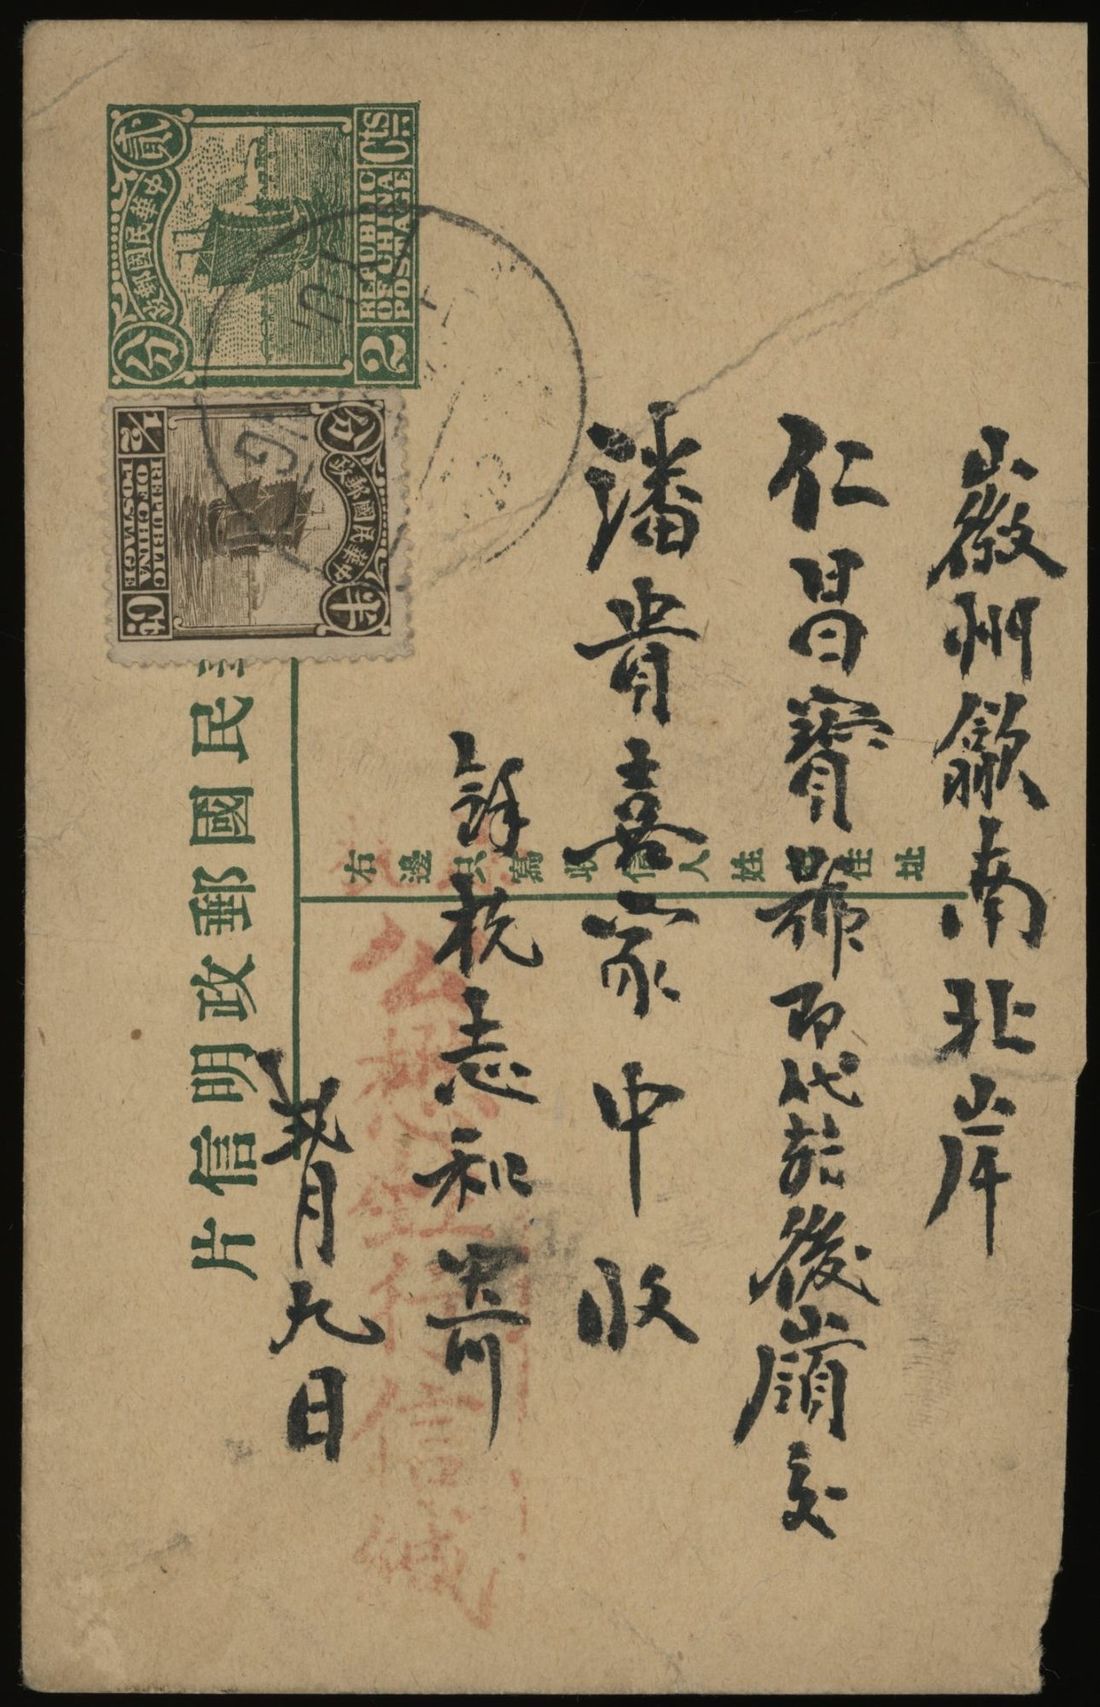 徽州歙南北岸
仁昌寶號即代於後嶺交
潘貴嘉家中收
餘杭志和寄
月九日
民國郵政明信片
右邊只寫收信人姓 住址
貳分
中華民國郵政
REPUBLIC
OF CHINA
POSTAGE
2 Cts
半分
中華民國郵政
REPUBLIC
OF CHINA
POSTAGE
1/2 Ct.